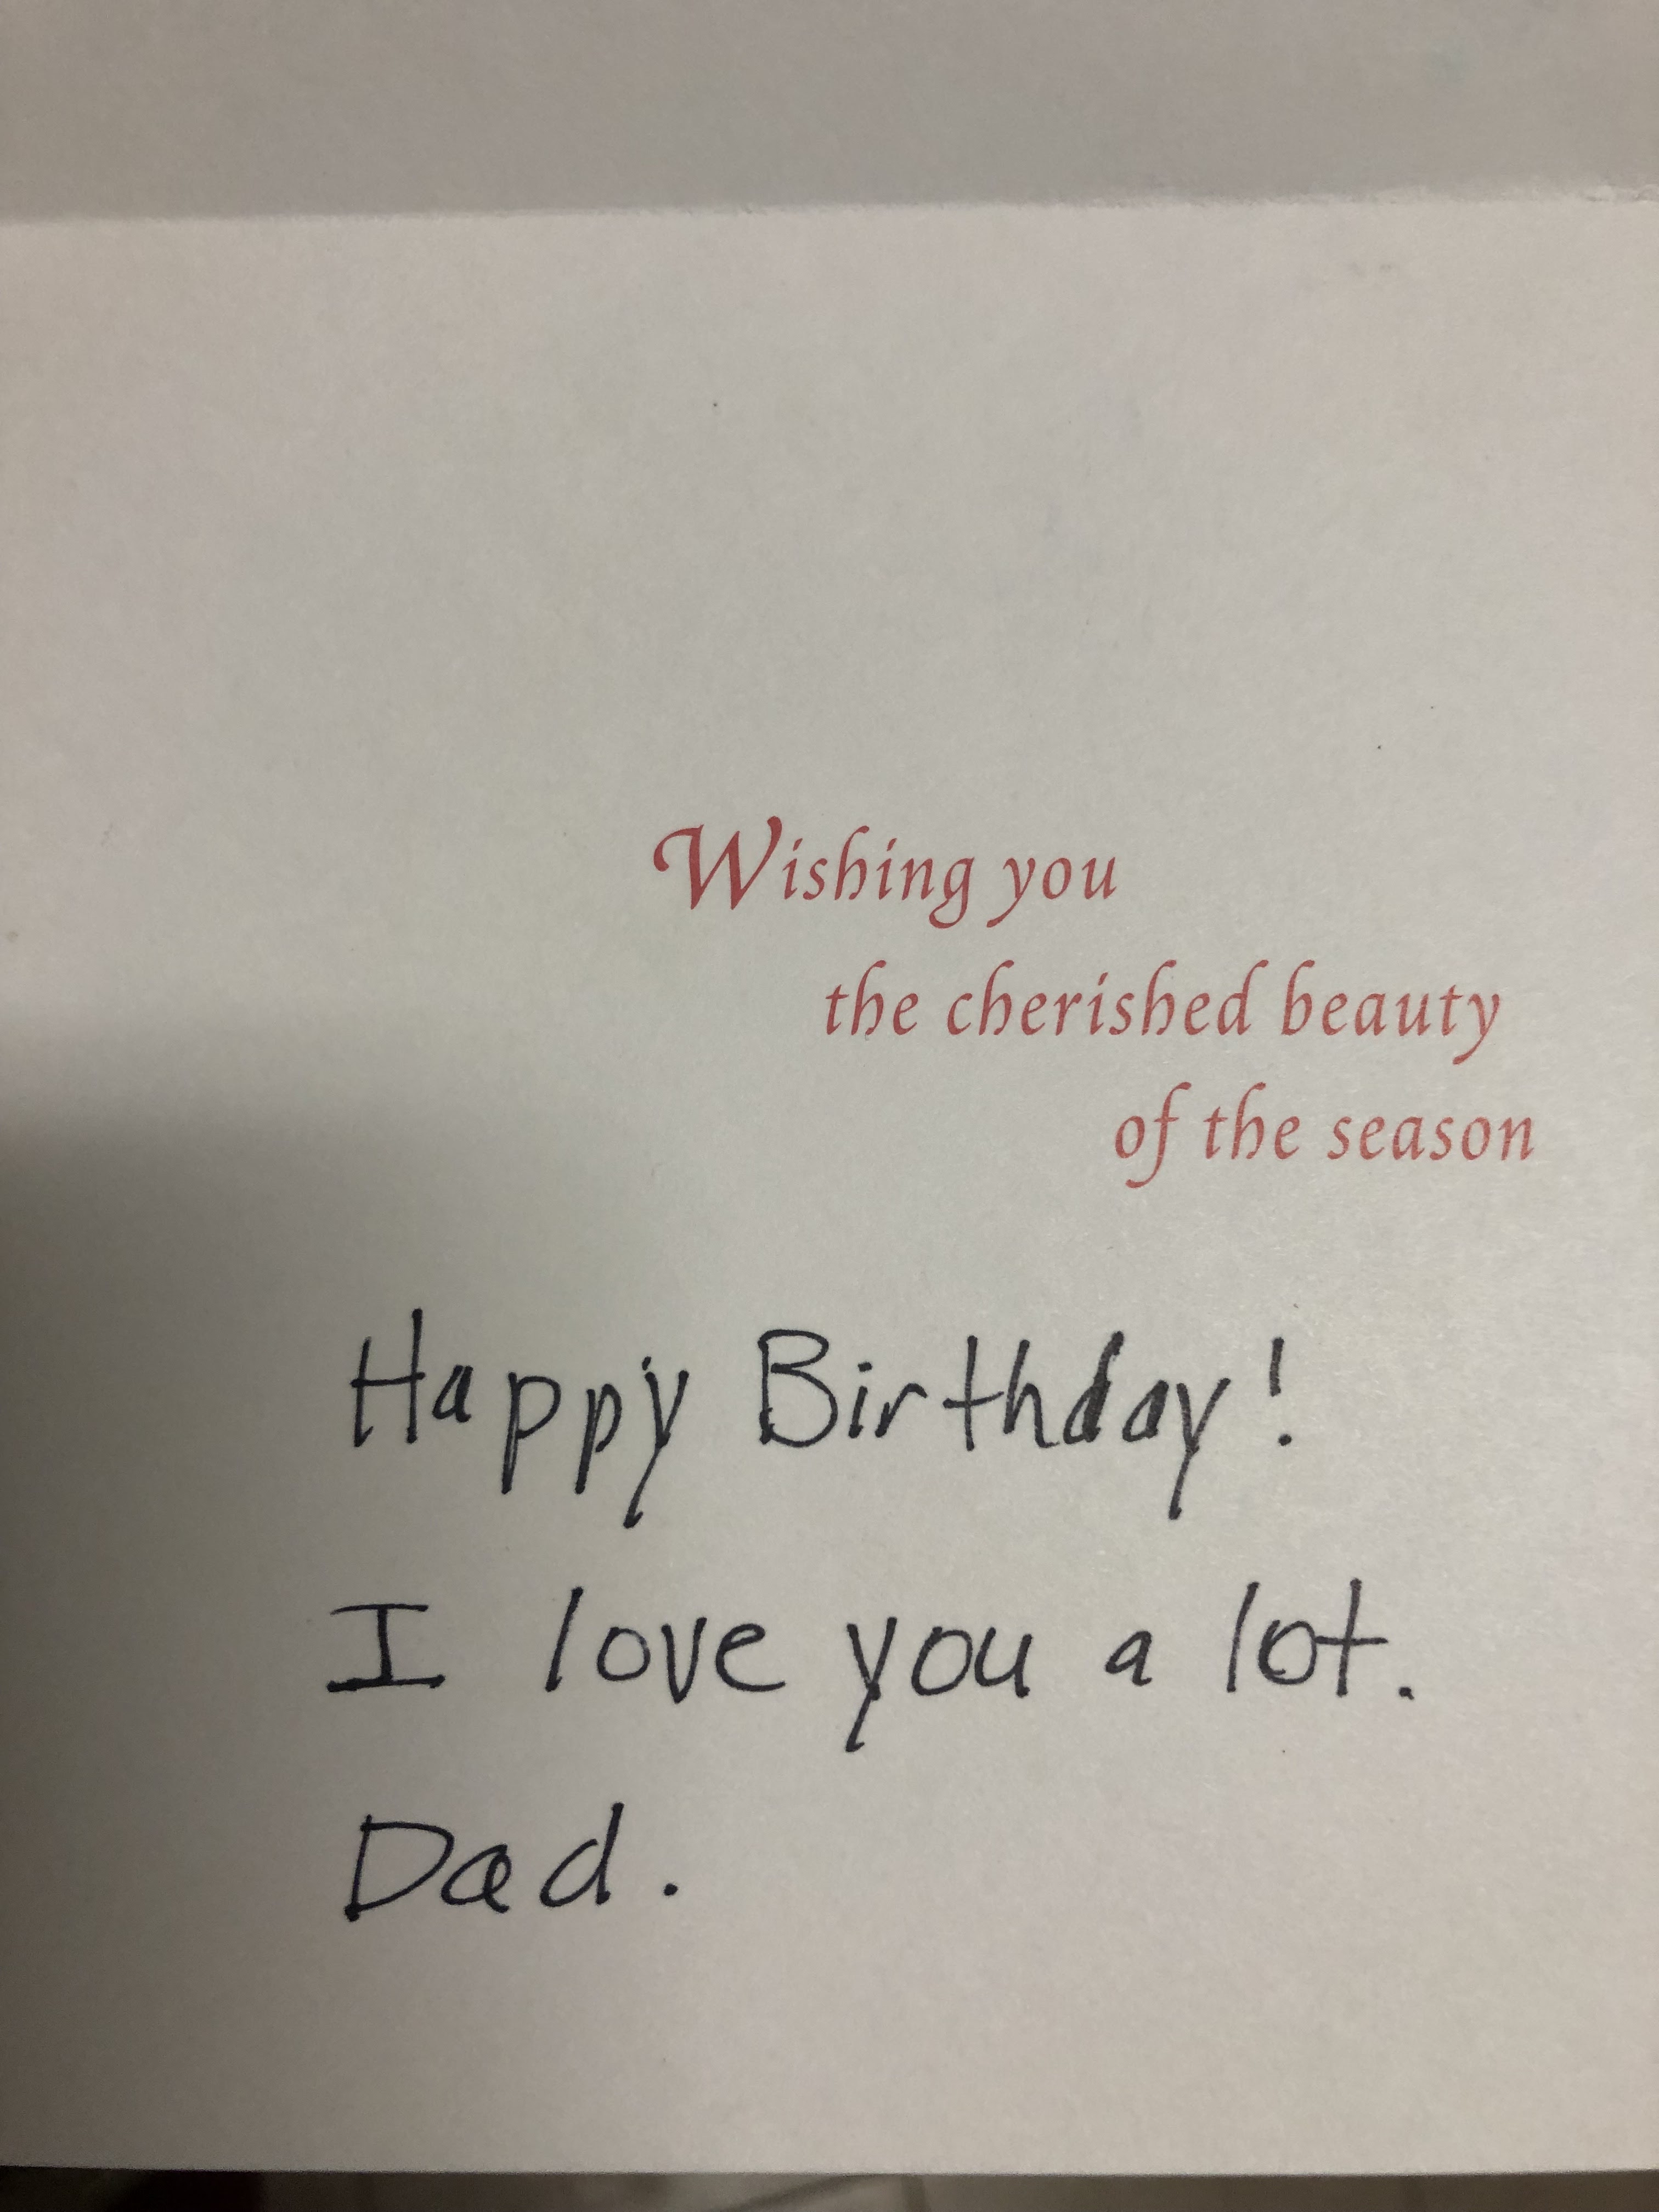 Wishing you
the cherished beauty
of the season
Happy Birthday!
I love you a lot.
Dad.